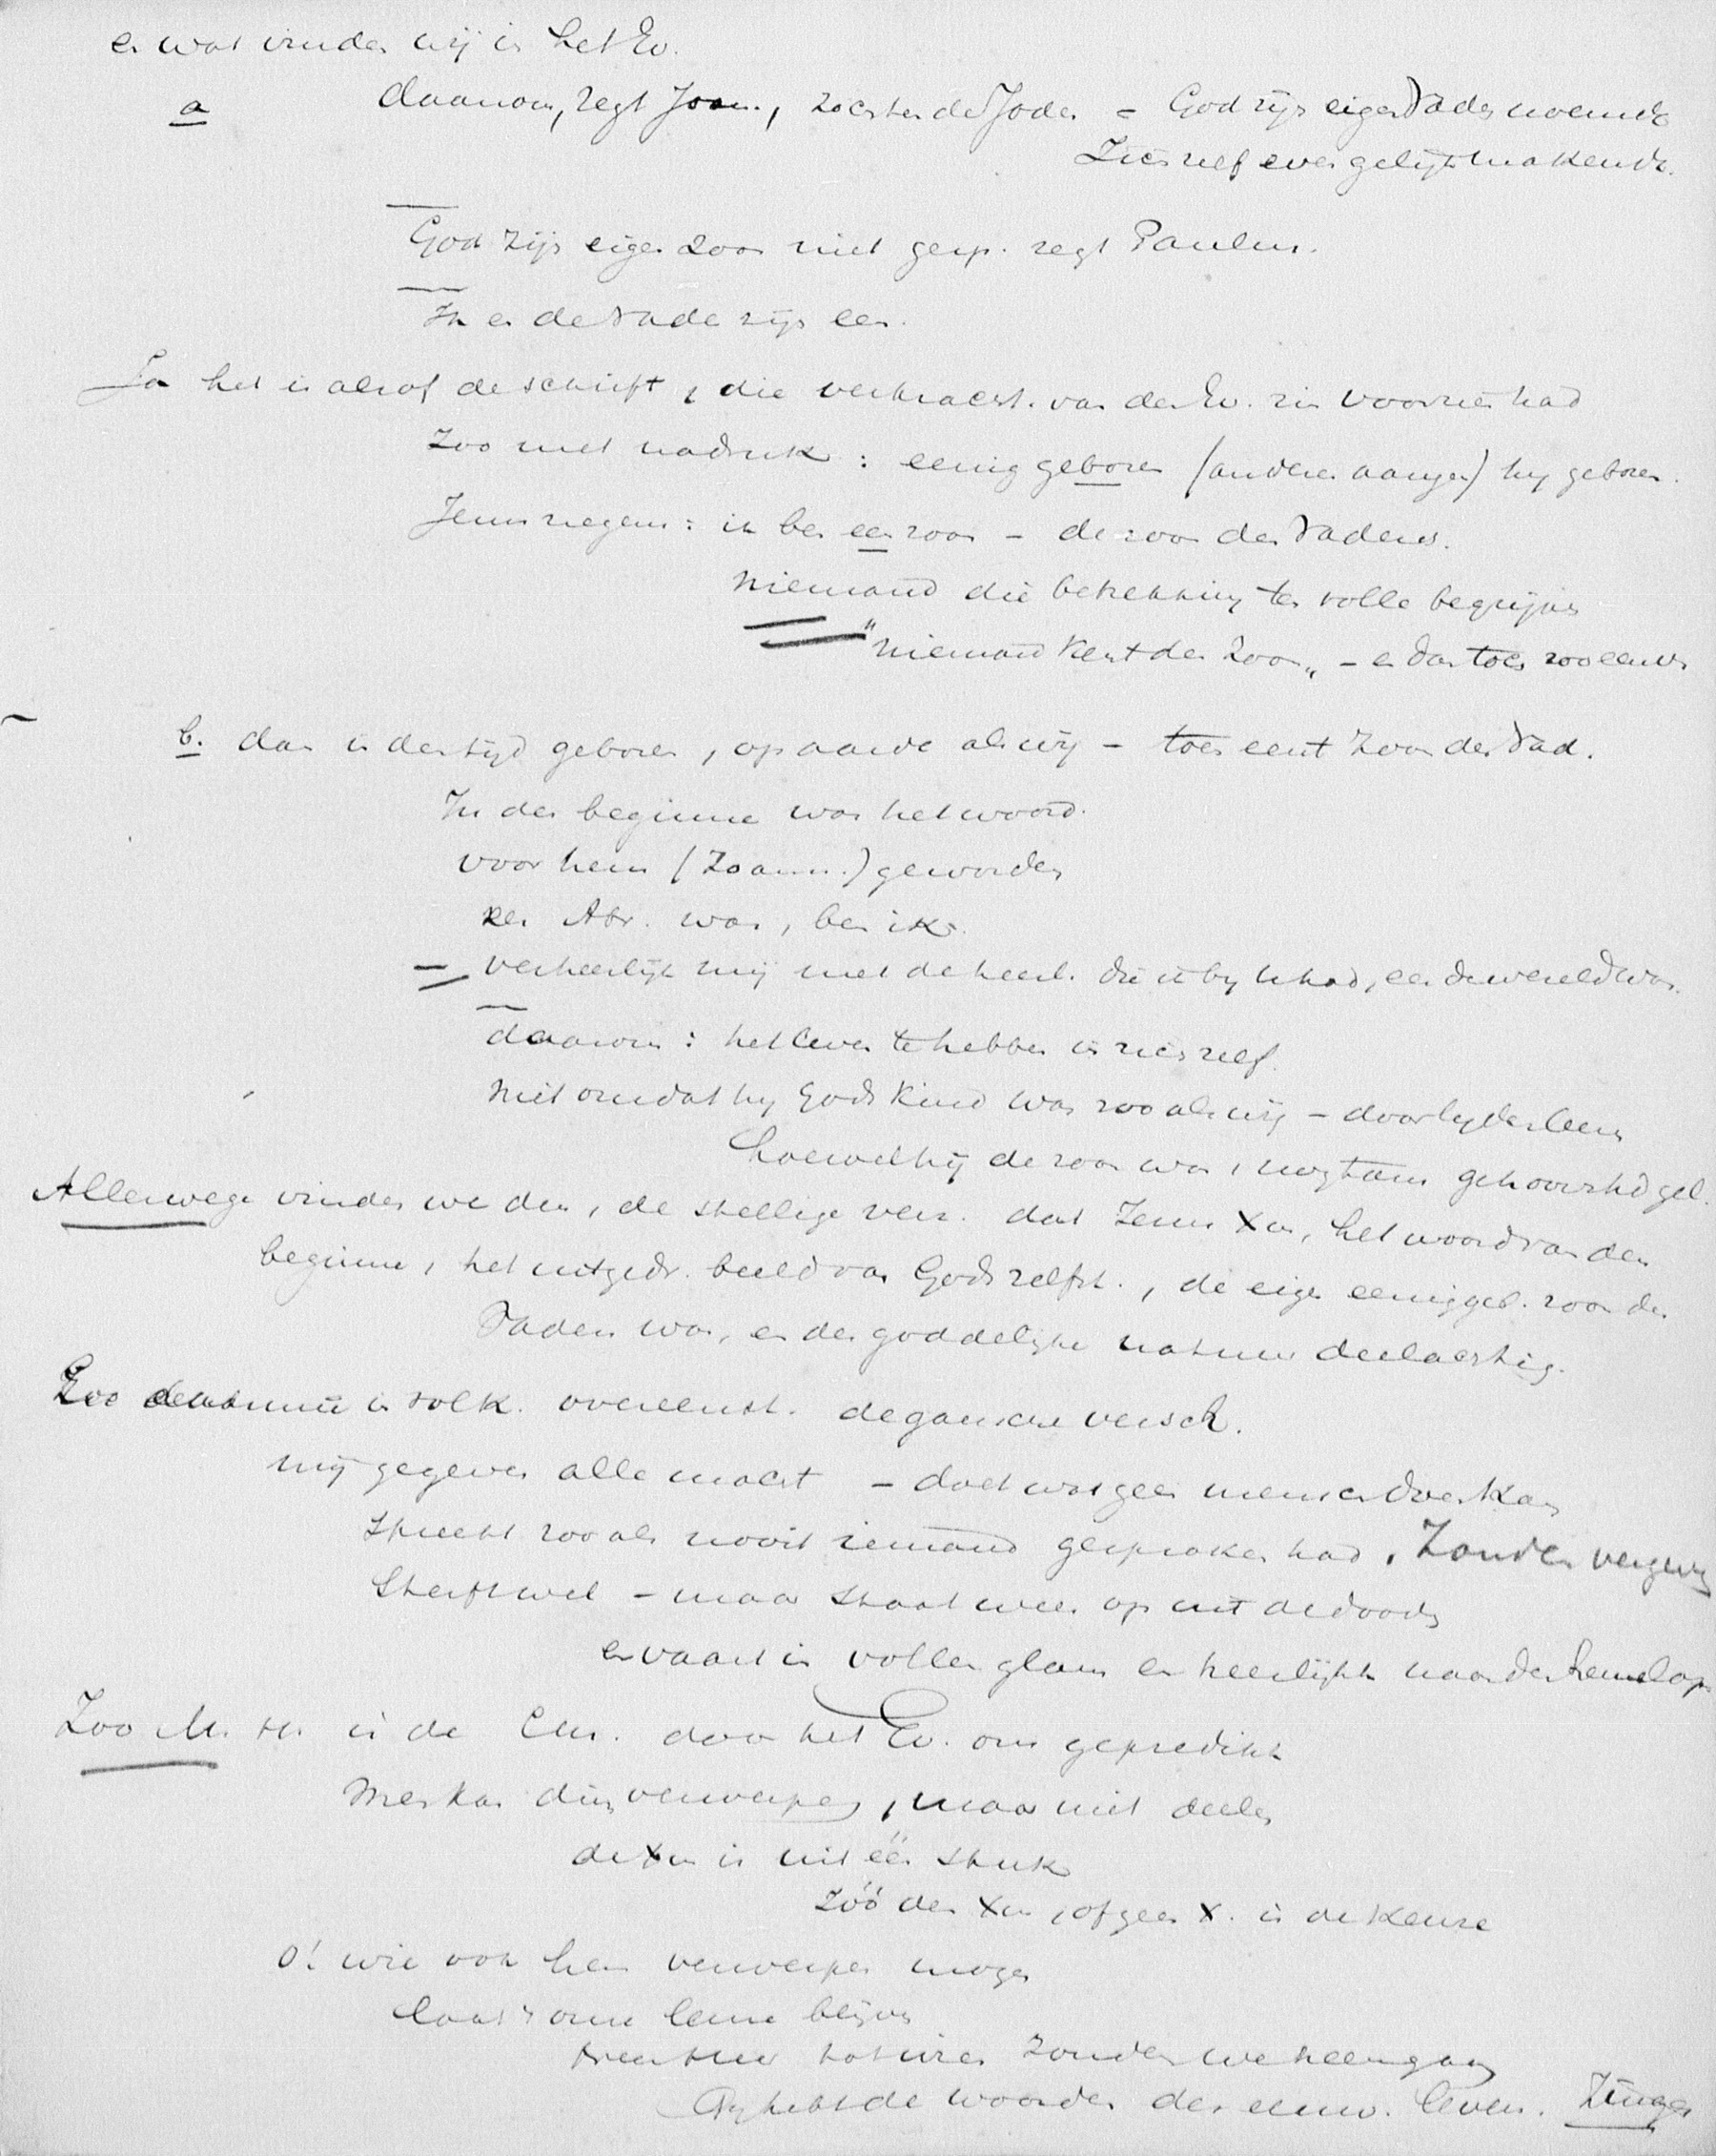 en wat vinden wij in het Ev.
a daarom, zegt Joan., zochten de Joden = God zijn eigen Vader noemde
Zich zelf even gelijk makende.
God zijn eigen Zoon niet gesp. zegt Paulus.
Ik en de Vader zijn een.
Ja het is alsof de schrift, die verkracht. van den Ev. zin voorzien had
Zoo met nadruk: eenig geboren (anderen aangen) hy geboren.
Jezus nergens: ik ben een zoon – de zoon des Vaders.
Niemand die betrekking ten volle begrijpen
"Niemand kent den Zoon" – en dan toch zoo eeuw
b. dan in der tijd geboren, op aarde als wij – toch eeut Zoon des Vad.
In den beginne was het woord.
voor hem (Joann.) geworden
eer Abr. was, ben ik.
verheerlijk mij met de heerl. die ik by U had, eer de wereld was.
daarom: het leven te hebben in zich zelf.
Niet omdat hy Gods kind was zooals wij – door lyden leeren
hoewel hij de zoon was, nogtans gehoorzhd gel.
Allerwege vinden we den, de stellige verz. dat Jezus Xus, het woord van den
beginne, het uitgedr. beeld van Gods zelfst., de eigen eeniggeb. zoon des
Vaders was, en der goddelijke natuur deelachtig.
Zoo in volk. overeenst. de gansche versch.
mij gegeven alle macht – doet wat geen mensch doen kan
spreekt zooals nooit iemand gesproken had. Zonden vergeven
Sterft wel – maar staat weer op uit de dooden
en vaart in vollen glans en heerlijkh naar den hemel op
Zoo M. H. is de Chr. door het Ev. ons gepredikt
Men kan dien verwerpen, maar niet deelen
de Xus is uit één stuk
Zóó den Xus, of geen X. is de keuze
O! wie ook hem verwerpen mogen
laat 's onze leuze blijven
tot wien zouden we heengaan
Gy hebt de woorden des eeuw. levens. Zingen